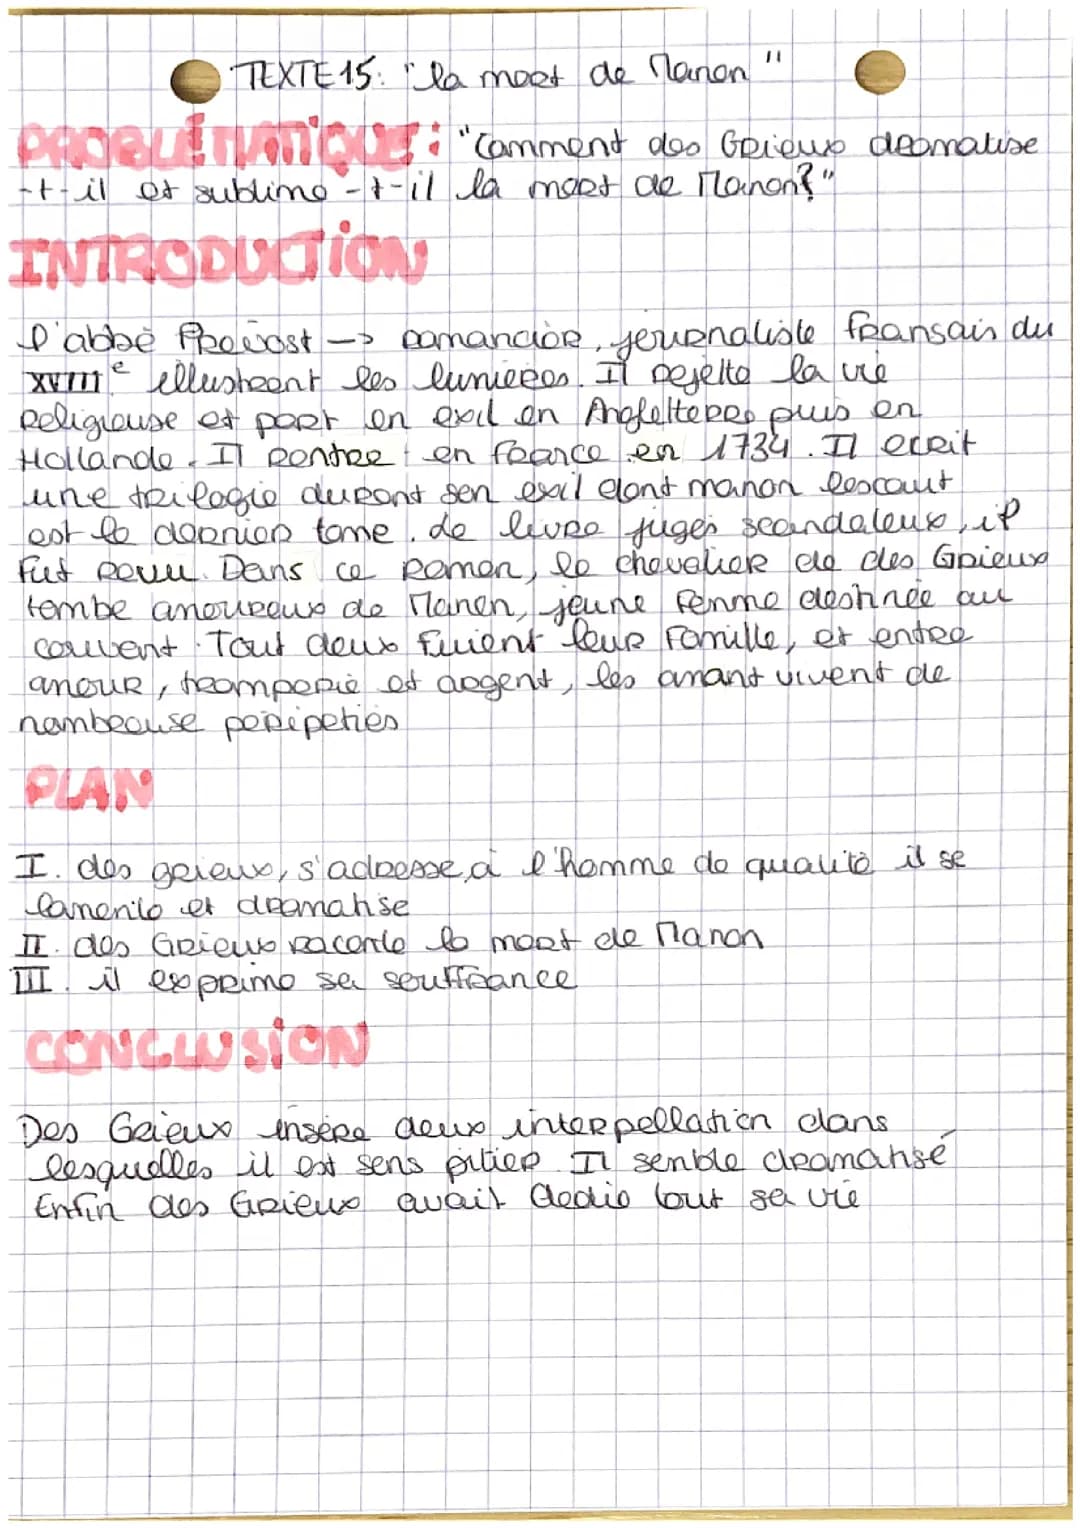 TEXTE 15: "la mort de Manon"
PROBLÉMATIQUE: "Comment des Grieux dramatise
-t-il et sublime-t-il la mort de Manon?"
INTRODUCTION
l'abbé Prévost → romancier, journaliste fransais du
XVIIIe illustrant les lumières. Il rejette la vie
religieuse et part en exil en Angleterre puis en
Hollande. Il rentre en france en 1734. Il ecrit
une trilogie durant son exil dont manon lescaut
est le dernier tome. de livre jugés scandaleux, il
fut revu. Dans ce roman, le chevalier de des Grieux
tombe amoureux de Manon, jeune femme destinée au
couvent. Tout deux fuient leur famille, et entre
amour, tromperie et argent, les amant vivent de
nombreuse péripéties
PLAN
I. des grieux, s'adresse à l'homme de qualité il se
lamente et dramatise
II. des Grieux raconte la mort de Manon
III. il exprime sa souffrance
CONCLUSION
Des Grieux insère deux interpellation dans
lesquelles il est sens pitier. Il semble dramatisé
Enfin des Grieux avait dedie tout sa vie